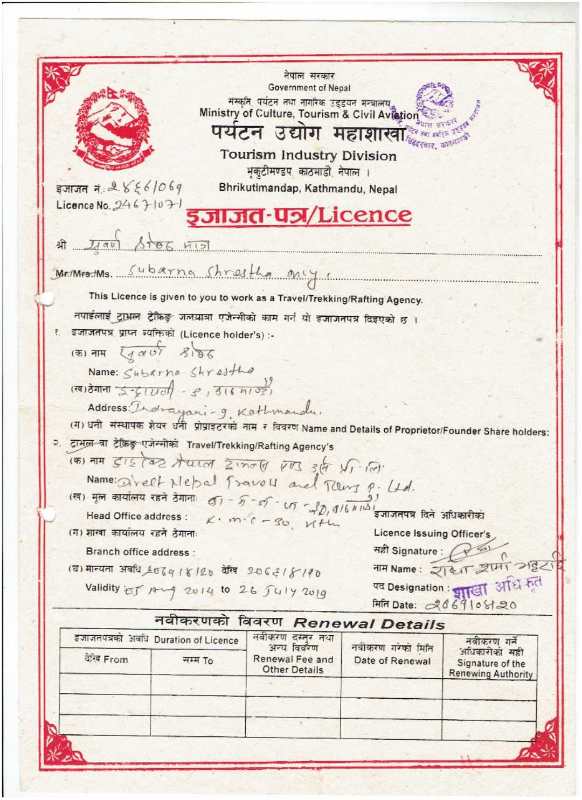 नेपाल सरकार
Government of Nepal
संस्कृति पर्यटन तथा नागरिक उड्डयन मन्त्रालय
Ministry of Culture, Tourism & Civil Aviation
पर्यटन उद्योग महाशाखा
Tourism Industry Division
भृकुटीमण्डप, काठमाडौं, नेपाल ।
Bhrikutimandap, Kathmandu, Nepal
इजाजत नं.
Licence No. 2467/071
इजाजत-पत्र/Licence
श्री सुवर्ण श्रेष्ठ मात्र
Mr./Mrs./Ms. Subarna Shrestha only.
This Licence is given to you to work as a Travel/Trekking/Rafting Agency.
तपाईलाई ट्राभल ट्रेकिङ्ग जलयात्रा एजेन्सीको काम गर्न यो इजाजतपत्र दिइएको छ ।
१. इजाजतपत्र प्राप्त व्यक्तिको (Licence holder's) :-
(क) नाम सुवर्ण श्रेष्ठ
Name: Subarna Shrestha
(ख) ठेगाना
Address: Indrayani-9, Kathmandu.
(ग) धनी संस्थापक शेयर धनी प्रोप्राइटरको नाम र विवरण Name and Details of Proprietor/Founder Share holders:
२. ट्राभल वा ट्रेकिङ्ग एजेन्सीको Travel/Trekking/Rafting Agency's
(क) नाम
Name: Direct Nepal Travels and Tours P. Ltd.
(ख) मूल कार्यालय रहने ठेगाना
Head Office address : K.M.C - 30, Kth
(ग) शाखा कार्यालय रहने ठेगाना
Branch office address :
(घ) मान्यता अवधि देखि
Validity 05 Aug 2014 to 26 July 2019
इजाजतपत्र दिने अधिकारीको
Licence Issuing Officer's
सही Signature :
नाम Name :
पद Designation : शाखा अधिकृत
मिति Date:
नवीकरणको विवरण Renewal Details
इजाजतपत्रको अवधि Duration of Licence
देखि From
सम्म To
नवीकरण दस्तुर तथा अन्य विवरण
Renewal Fee and Other Details
नवीकरण गरेको मिति
Date of Renewal
नवीकरण गर्ने अधिकारीको सही
Signature of the Renewing Authority